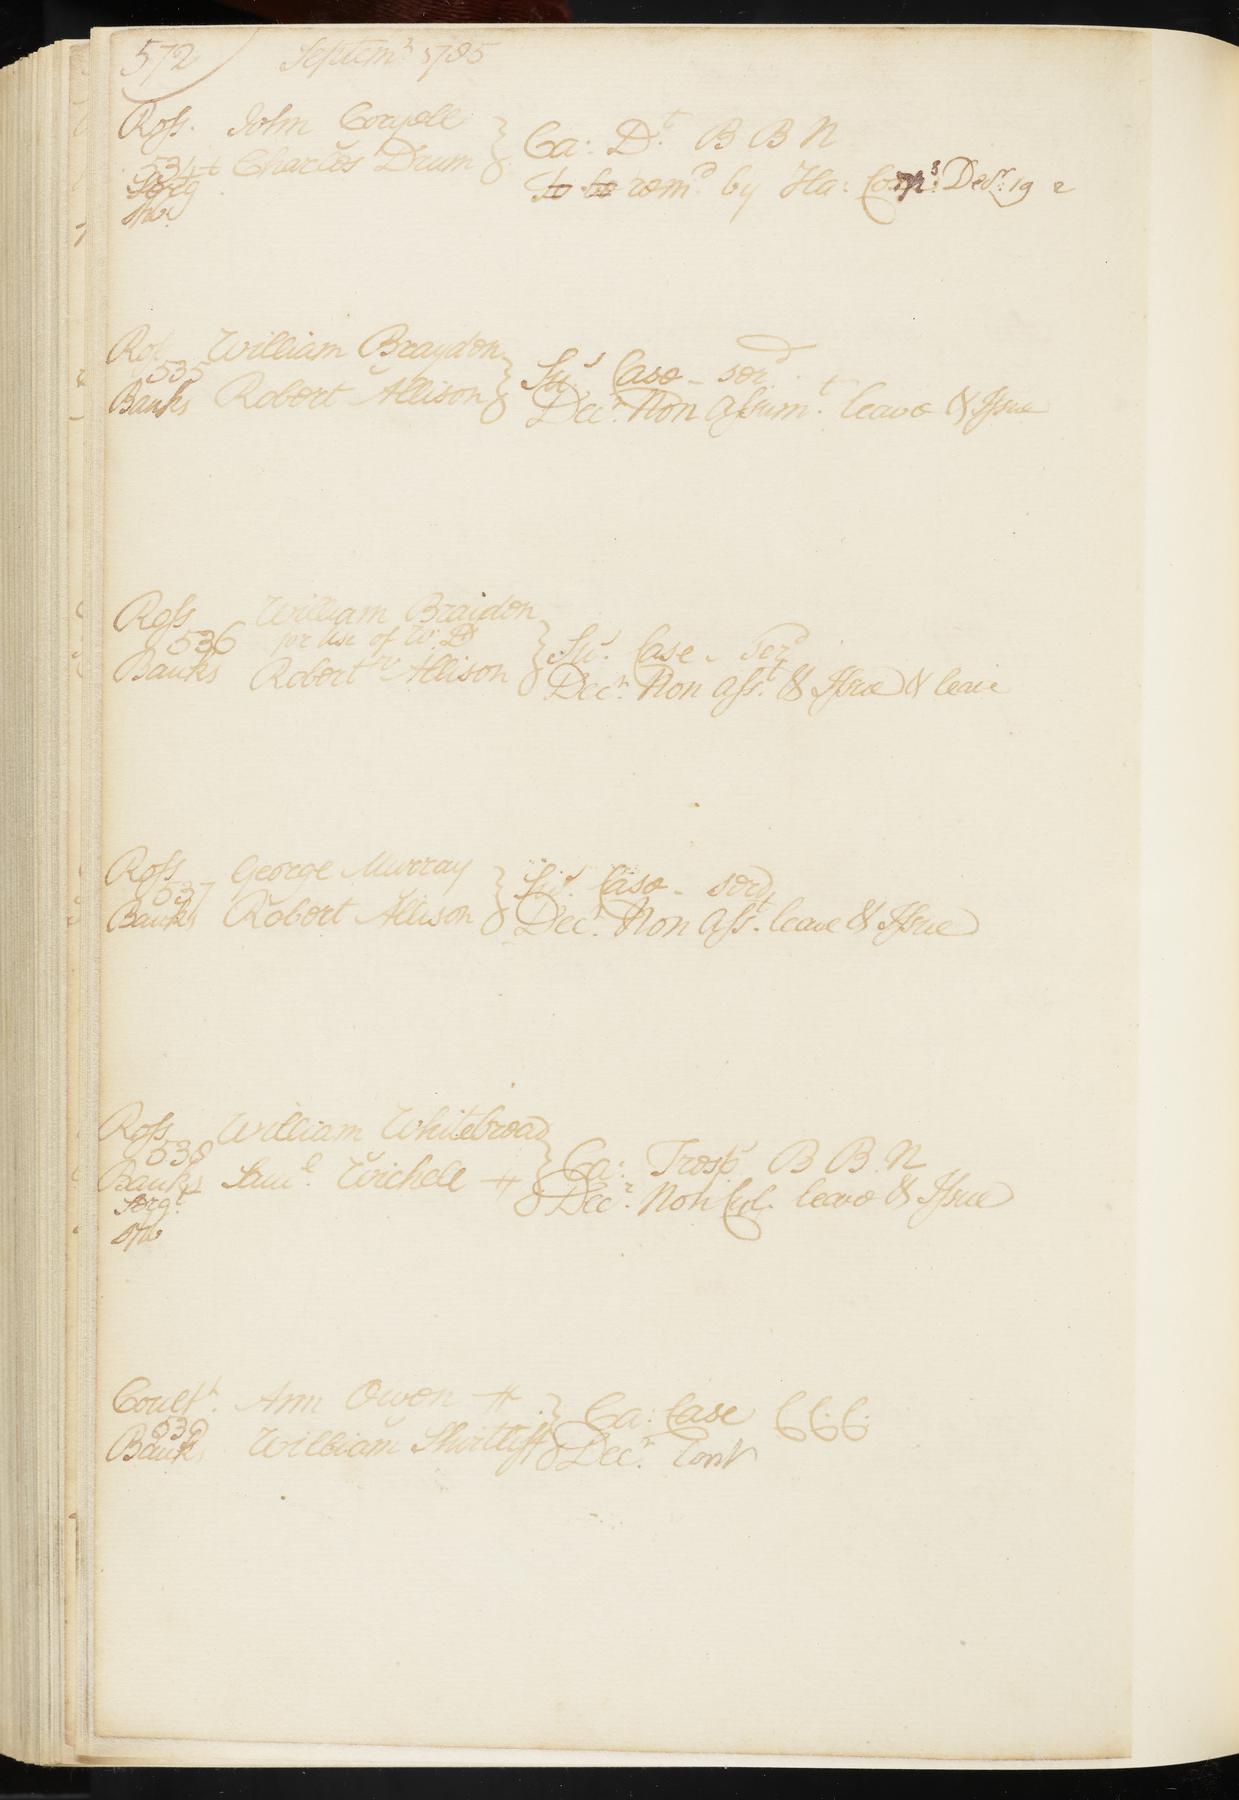 572 Septem.r 1785
Ross. John Coryell
534 Charles Drum
Serg.t
Ca: D.t B B N
To be rem.d by Ha: Corp.s Dec.r 19
Ross William Braydon
535
Banks Robert Allison
Su.s Case - ser.d
Dec.r Non Assum.t leave & Issue
Ross William Braidon
536 for Use of W. D
Banks Robert v Allison
Su.s Case - Ser.d
Dec.r Non Ass.t & Issue & leave
Ross George Murray
537
Banks Robert Allison
Su.s Case - serd
Dec.r Non Ass.t leave & Issue
Ross William Whitebread
538
Banks Sam.l Twichell #
Serg.t
Ca: Tresp.s B B N
Dec.r Non Cul. leave & Issue
Coult.r Ann Owen #
539
Banks William Shirtliff
Ca: Case C C C
Dec.r Cont